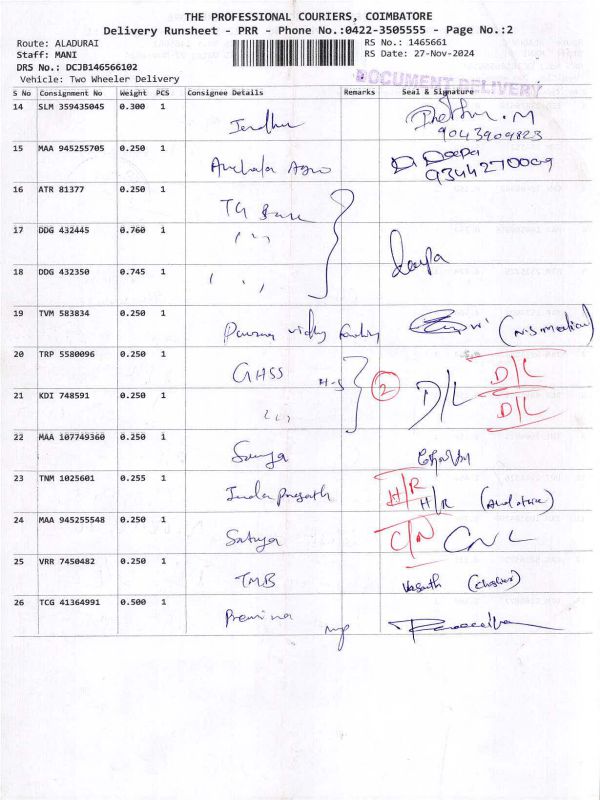 THE PROFESSIONAL COURIERS, COIMBATORE
Delivery Runsheet - PRR - Phone No.:0422-3505555 - Page No.:2
Route: ALADURAI
Staff: MANI
DRS No.: DCJB146566102
Vehicle: Two Wheeler Delivery
RS No.: 1465661
RS Date: 27-Nov-2024
DOCUMENT DELIVERY
S No Consignment No Weight PCS Consignee Details Remarks Seal & Signature
14 SLM 359435045 0.300 1
9043909823
15 MAA 945255705 0.250 1 Agro Deepa
9344270009
16 ATR 81377 0.250 1 TG
17 DDG 432445 0.760 1 " "
18 DDG 432350 0.745 1 " "
19 TVM 583834 0.250 1
20 TRP 5580096 0.250 1 GHSS H-S D/L
21 KDI 748591 0.250 1 " " 2 D/L D/L
22 MAA 107749360 0.250 1
23 TNM 1025601 0.255 1 H/R H/R
24 MAA 945255548 0.250 1 Satuya C/N CNL
25 VRR 7450482 0.250 1 TMB Vasanth (Cashier)
26 TCG 41364991 0.500 1 Premina